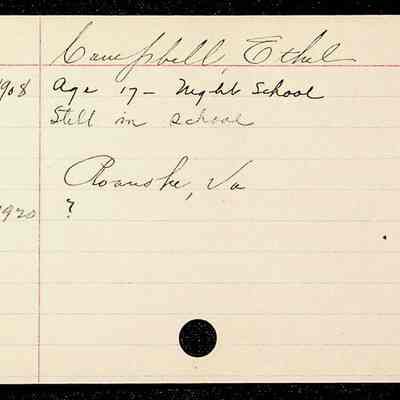 Campbell, Ethel
1908 Age 17 - Night School
Still in school
Roanoke, Va
1920 ?